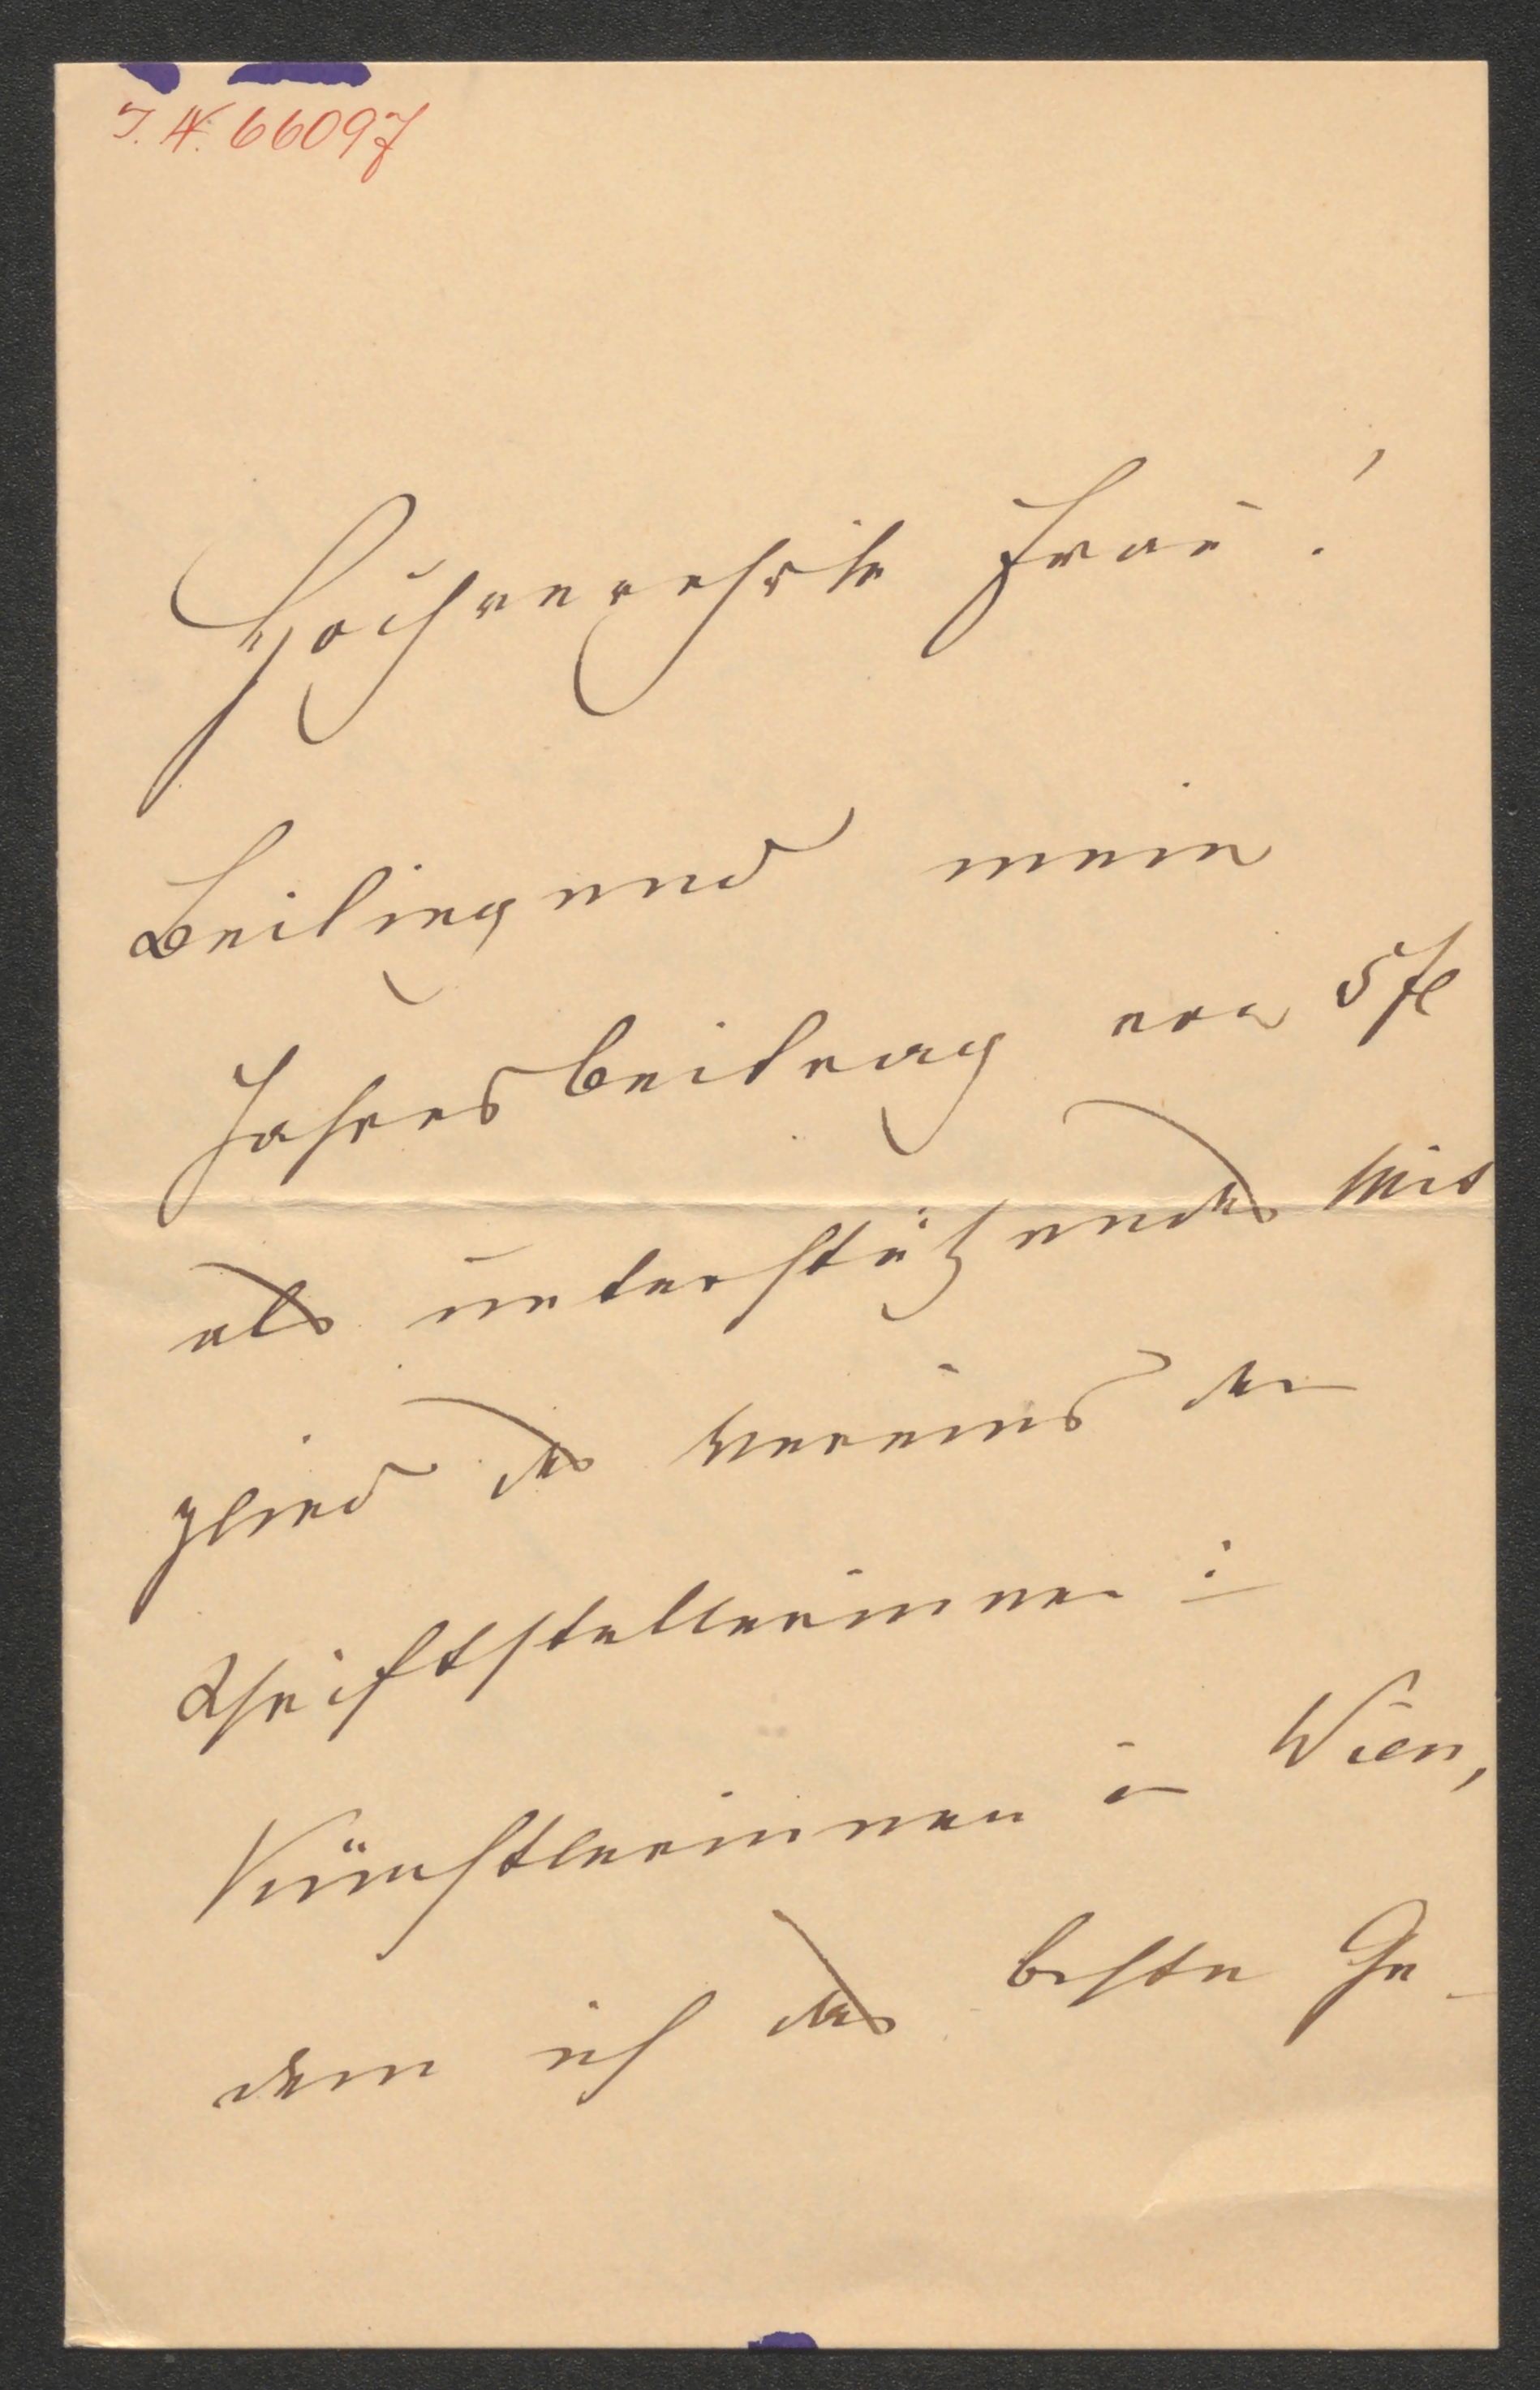 I. N. 66097
Hochverehrte Frau!
Beiliegend mein
Jahresbeitrag von 5 fl
als unterstützendes Mit
glied des Vereins der
Schriftstellerinnen u
Künstlerinnen in Wien,
dem ich das beste Ge-